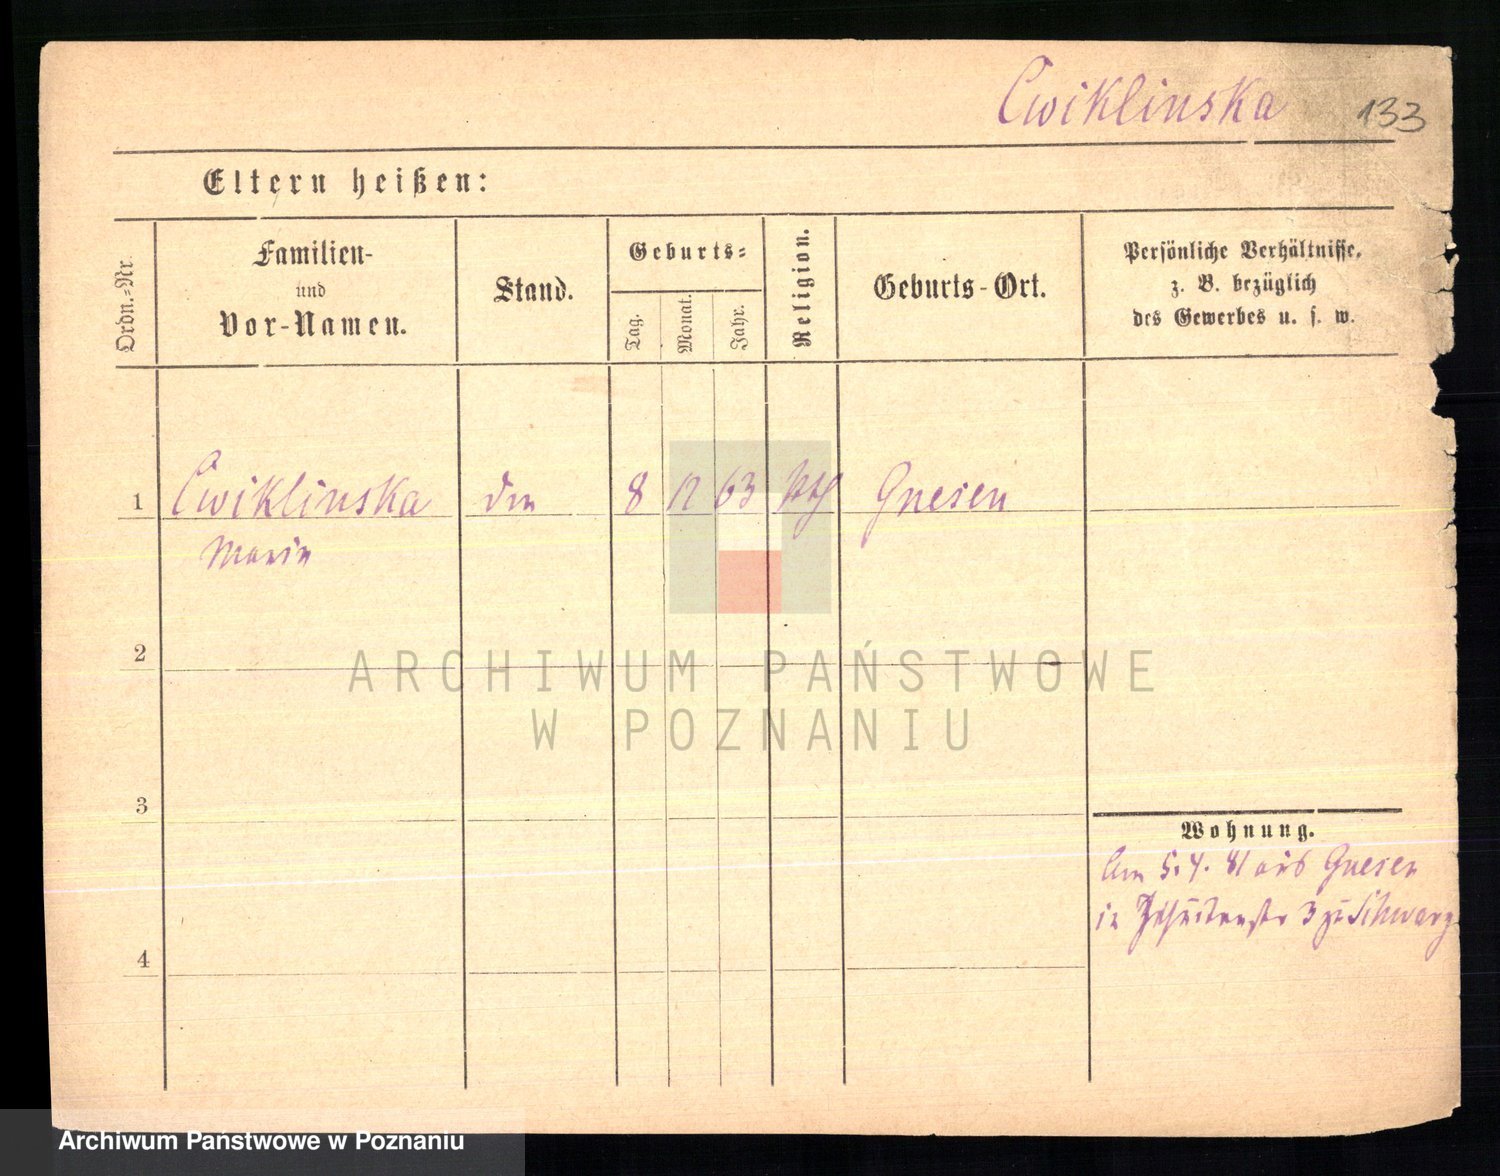 Cwiklinska 133
Eltern heißen:
Ordn.-Nr.
Familien-
und
Vor-Namen.
Stand.
Geburts-
Tag.
Monat.
Jahr.
Religion.
Geburts-Ort.
Persönliche Verhältnisse,
z. B. bezüglich
des Gewerbes u. s. w.
1 Cwiklinska 8 12 63 kth Gnesen
Marie
2
3
4
Wohnung.
Am 5.4. 81 aus Gnesen
in Jesuitenstr 3 zu Schwarz
ARCHIWUM PAŃSTWOWE
W POZNANIU
Archiwum Państwowe w Poznaniu